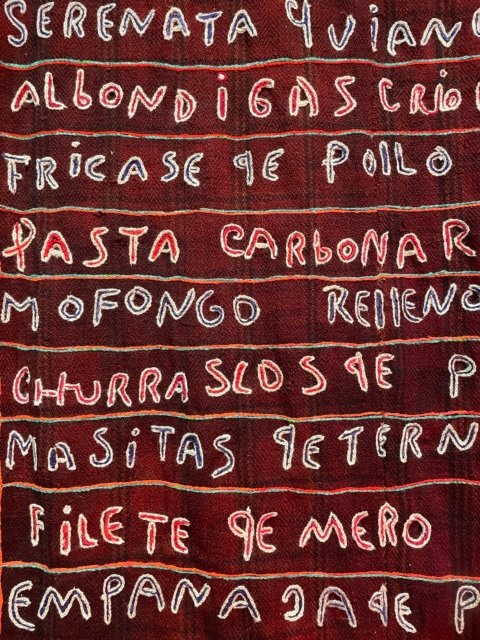 SERENATA qUIAN
ALBONDIGAS CRIO
FRICASE qE POLLO
PASTA CARBONAR
MOFONGO RELLENO
CHURRASCOS qE P
MASITAS qE TERN
FILETE qE MERO
EMPANAJA qE P